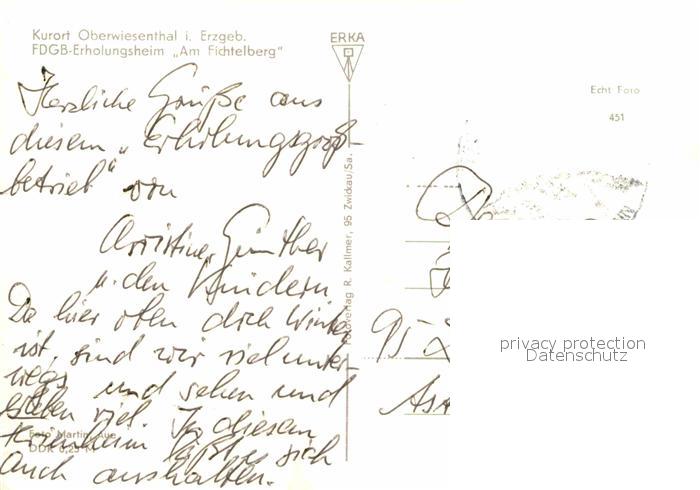 Kurort Oberwiesenthal i. Erzgeb.
FDGB-Erholungsheim „Am Fichtelberg"
ERKA
Echt Foto
451
Herzliche Grüße aus
diesem „Erholungsgroß-
betrieb" von
Christine, Günther
u. den Kindern
Da hier oben doch Winter
ist, sind wir viel unter-
wegs und sehen und
erleben viel. In diesem
läßt es sich
auch aushalten.
Foto Martin
DDR 0,25 M
Fotoverlag R. Kallmer, 95 Zwickau/Sa.
95
privacy protection
Datenschutz